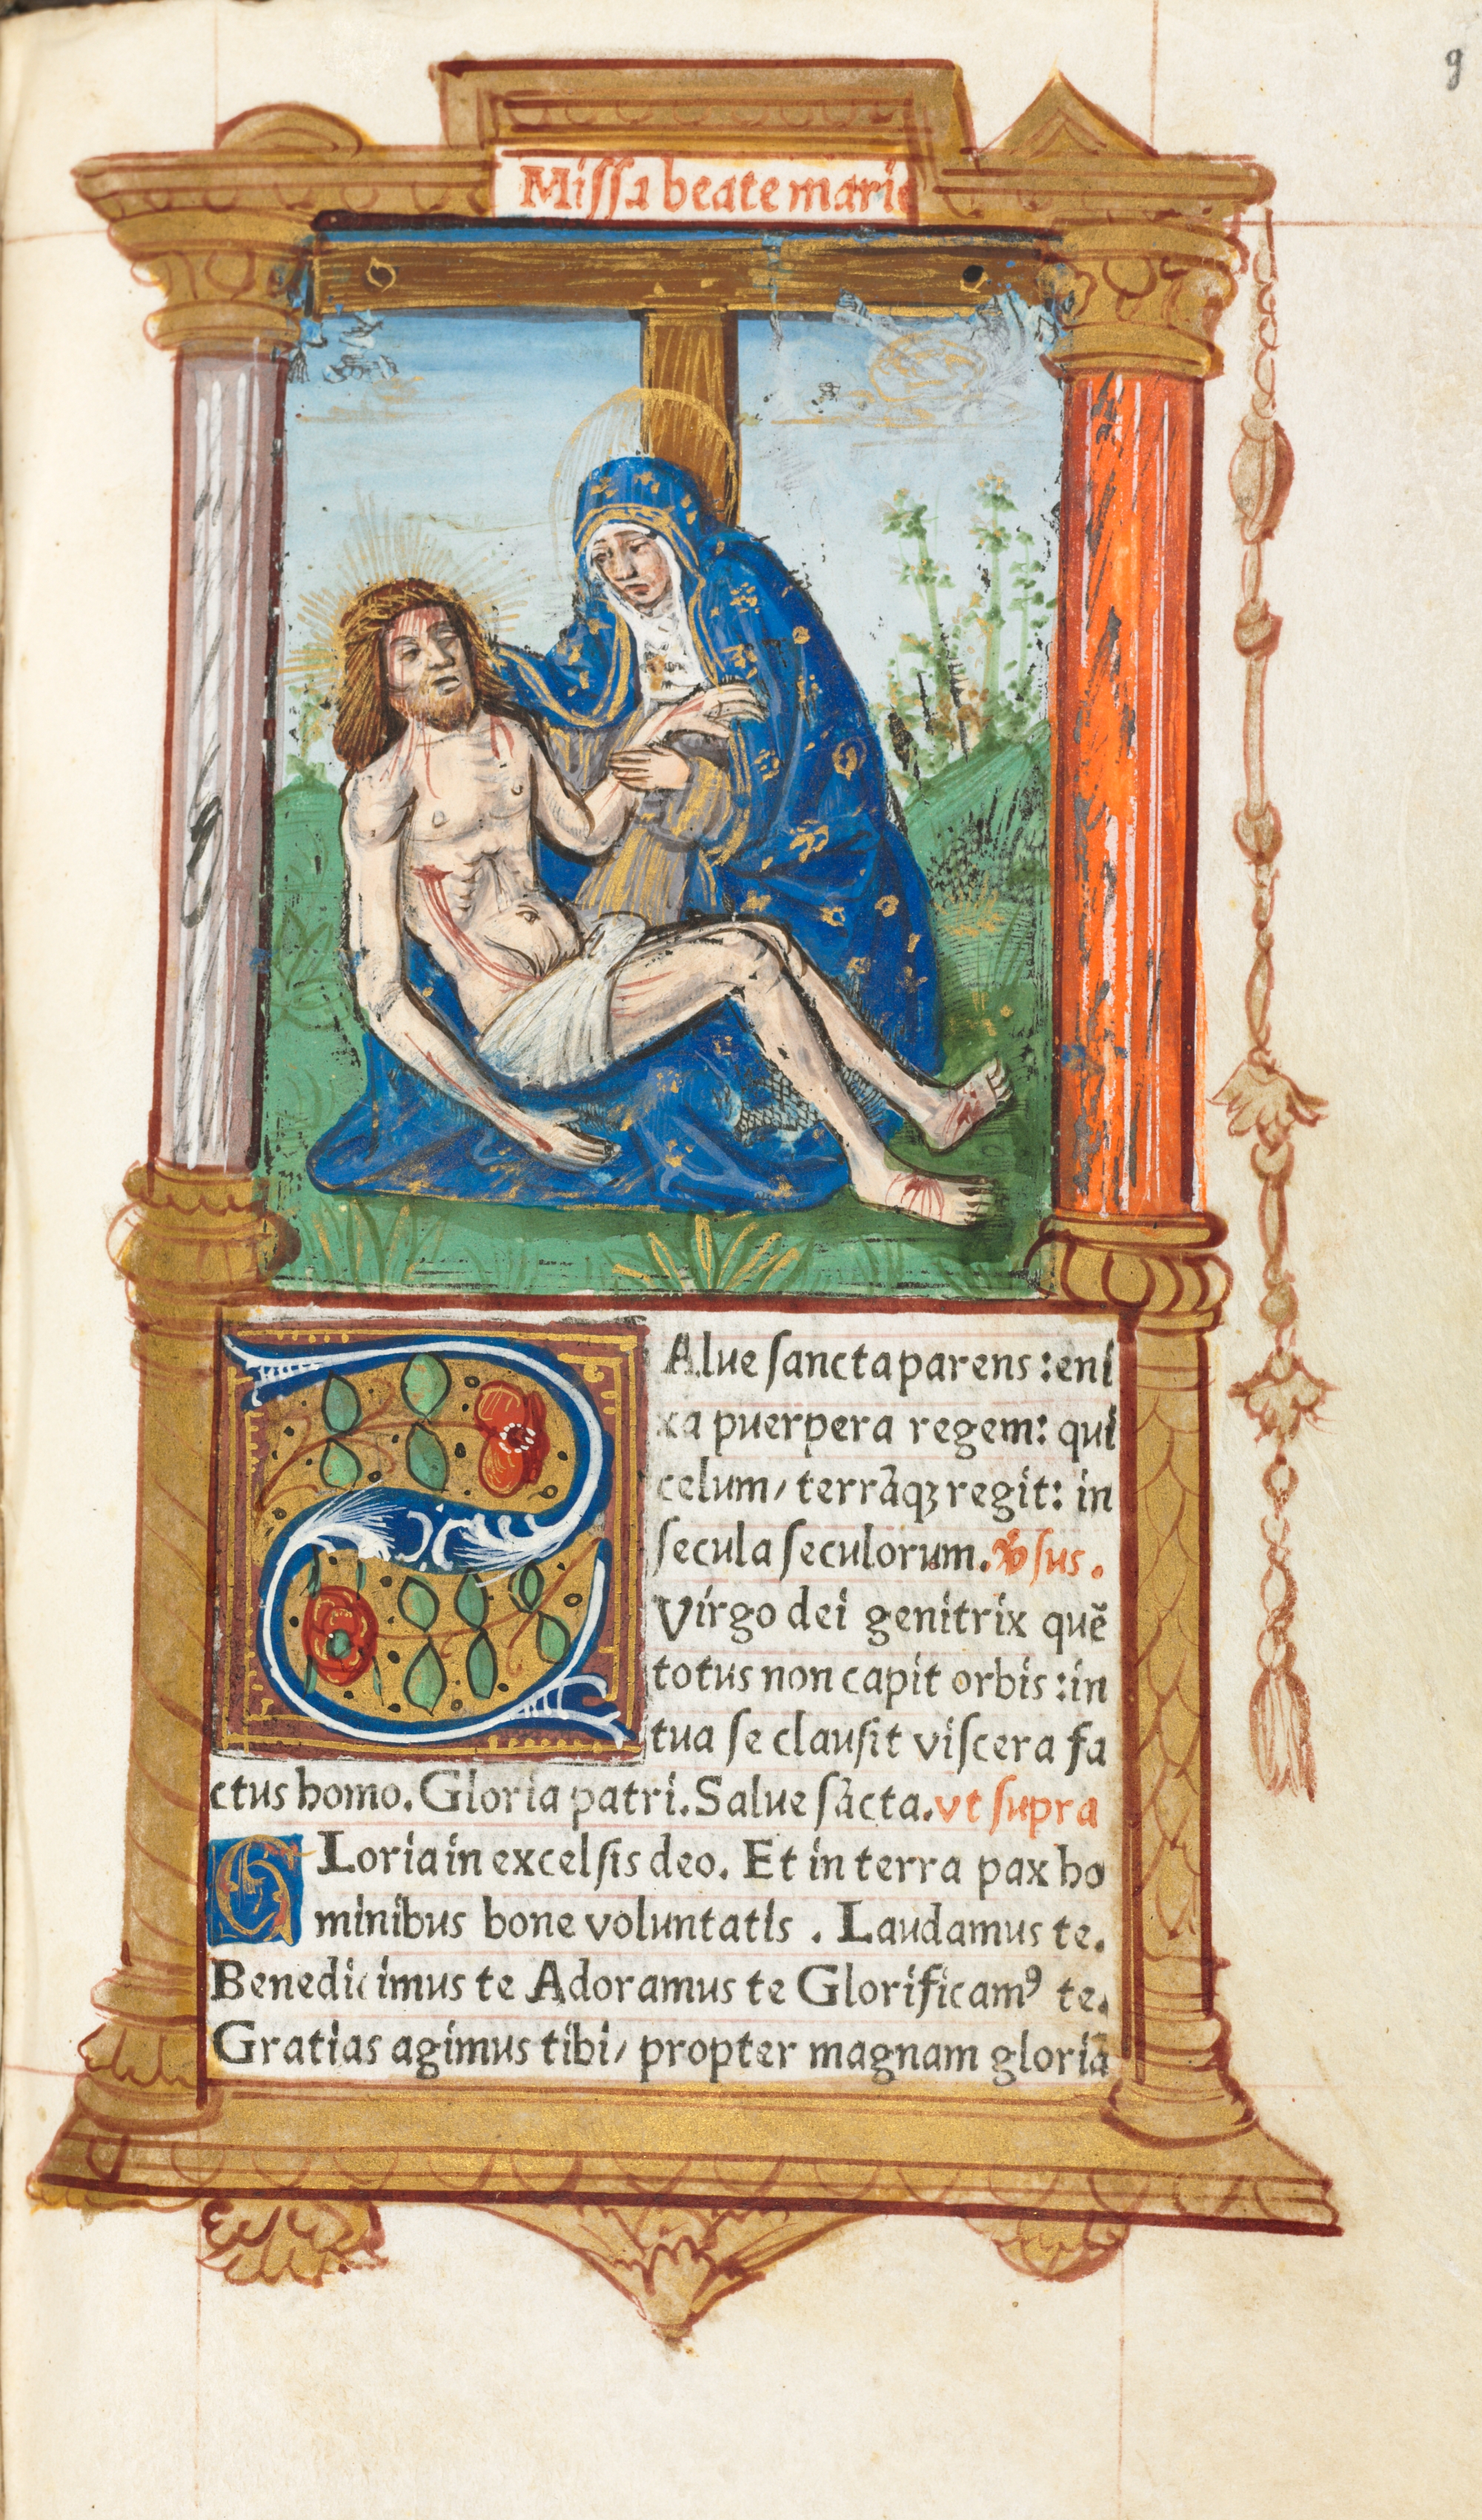 9
Missa beate marie
SAlue sancta parens : eni
xa puerpera regem: qui
celum/ terrāqꝫ regit: in
secula seculorum. ℣sus.
Virgo dei genitrix quē
totus non capit orbis : in
tua se clausit viscera fa
ctus homo. Gloria patri. Salue sācta. vt supra
GLoria in excelsis deo. Et in terra pax ho
minibus bone voluntatis . Laudamus te.
Benedicimus te Adoramus te Glorificamꝰ te.
Gratias agimus tibi/ propter magnam gloriā